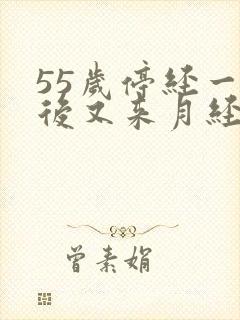 55歲停經一
後又來月經
曾素娟